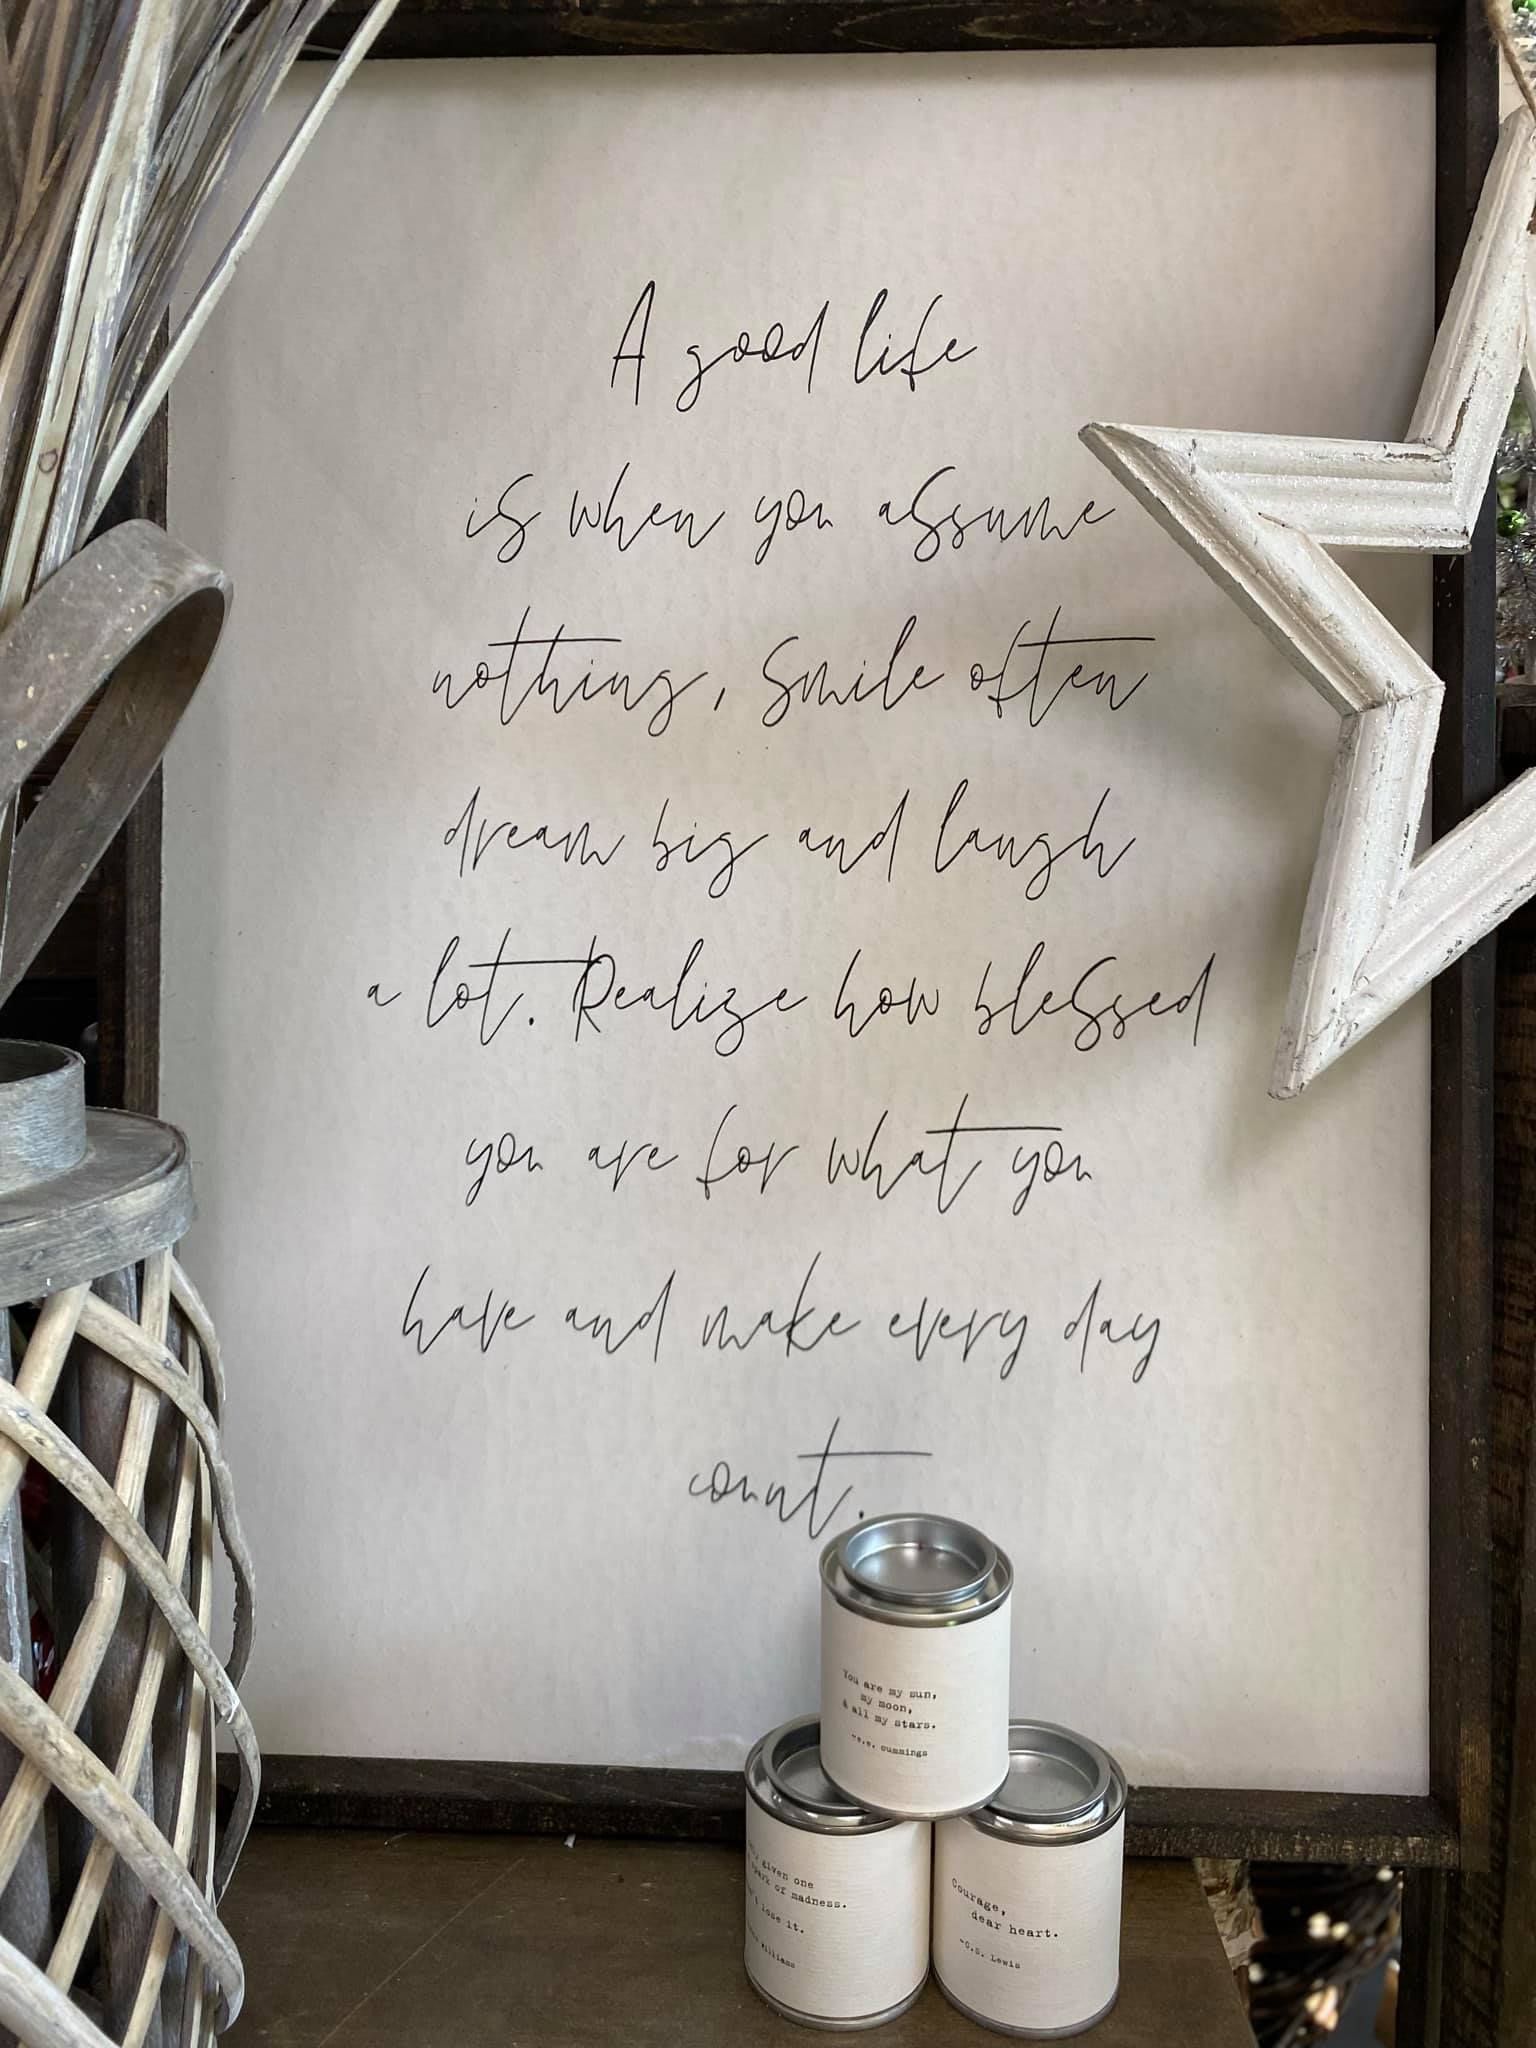 A good life
is when you assume
nothing, smile often
dream big and laugh
a lot. Realize how blessed
you are for what you
have and make every day
count.
You are my sun,
my moon,
& all my stars.
~e.e. cummings
given one
spark of madness.
lose it.
Williams
Courage,
dear heart.
~C.S. Lewis